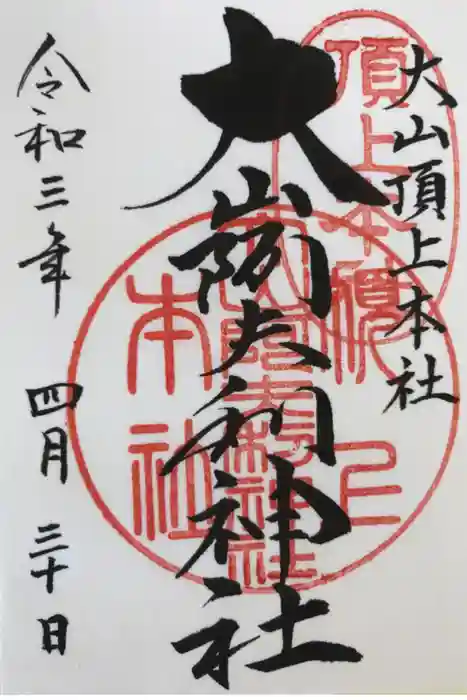 大山頂上本社
大山阿夫利神社
令和三年 四月 三十日
頂上
大山阿夫利神社
本社